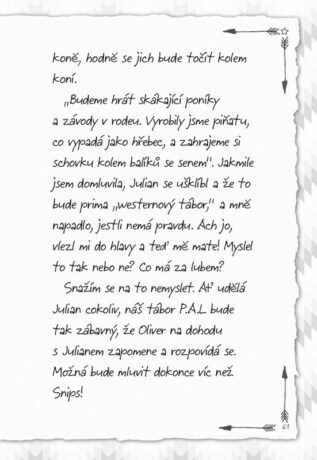 koně, hodně se jich bude točit kolem
koní.
„Budeme hrát skákající poníky
a závody v rodeu. Vyrobily jsme piñatu,
co vypadá jako hřebec, a zahrajeme si
schovku kolem balíků se senem“. Jakmile
jsem domluvila, Julian se ušklíbl a že to
bude prima „westernový tábor,“ a mně
napadlo, jestli nemá pravdu. Ach jo,
vlezl mi do hlavy a teď mě mate! Myslel
to tak nebo ne? Co má za lubem?
Snažím se na to nemyslet. Ať udělá
Julian cokoliv, náš tábor P.A.L bude
tak zábavný, že Oliver na dohodu
s Julianem zapomene a rozpovídá se.
Možná bude mluvit dokonce víc než
Snips!
61